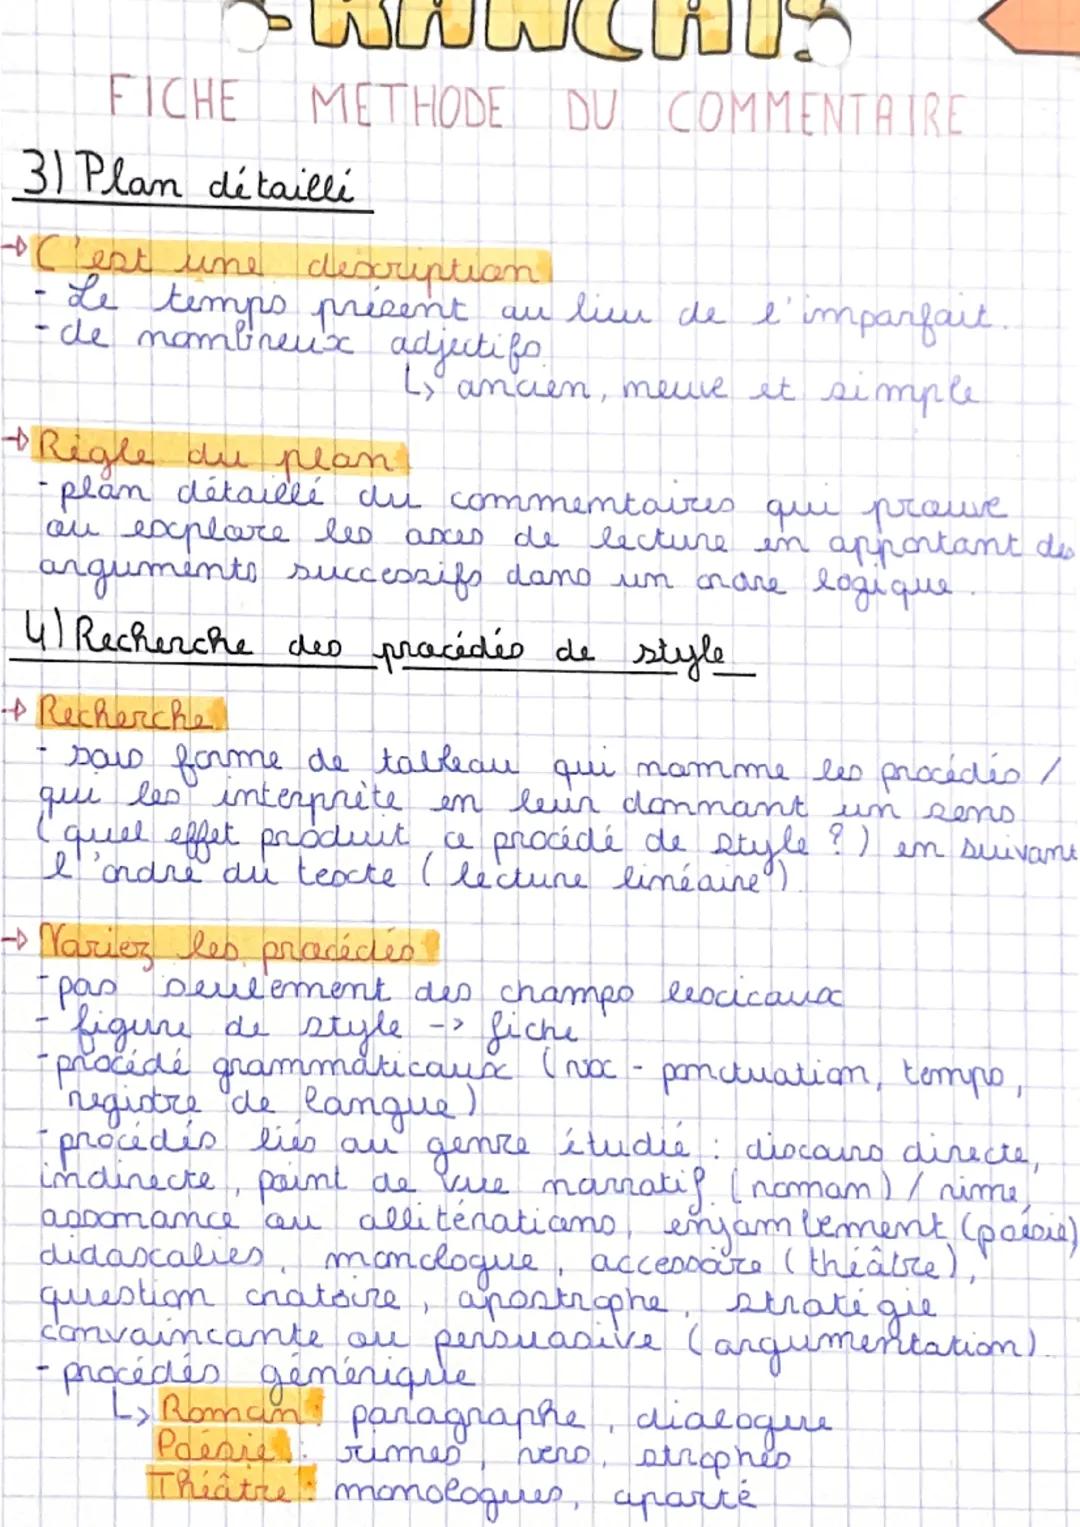 FRANÇAIS
FICHE METHODE DU COMMENTAIRE
3) Plan détaillé
→ C'est une description
- Le temps présent au lieu de l'imparfait.
- de nombreux adjectifs
↳ ancien, neuve et simple
→ Règle du plan
- plan détaillé du commentaires qui prouve
ou explore les axes de lecture en apportant des
arguments successifs dans un ordre logique.
4) Recherche des procédés de style
→ Recherche
- sous forme de tableau qui nomme les procédés /
qui les interprète en leur donnant un sens
(quel effet produit ce procédé de style ?) en suivant
l'ordre du texte (lecture linéaire)
→ Variez les procédés
- pas seulement des champs lexicaux
- figure de style -> fiche
- procédé grammaticaux (voc - ponctuation, temps,
registre de langue)
- procédés liés au genre étudié : discours directe,
indirecte, point de vue narratif (roman) / rime,
assonance ou allitérations, enjambement (poésie)
didascalies, monologue, accessoire (théâtre),
question oratoire, apostrophe, stratégie
convaincante ou persuasive (argumentation).
- procédés générique
↳ Roman : paragraphe, dialogue
Poésie : rimes, vers, strophes
Théâtre : monologues, aparté